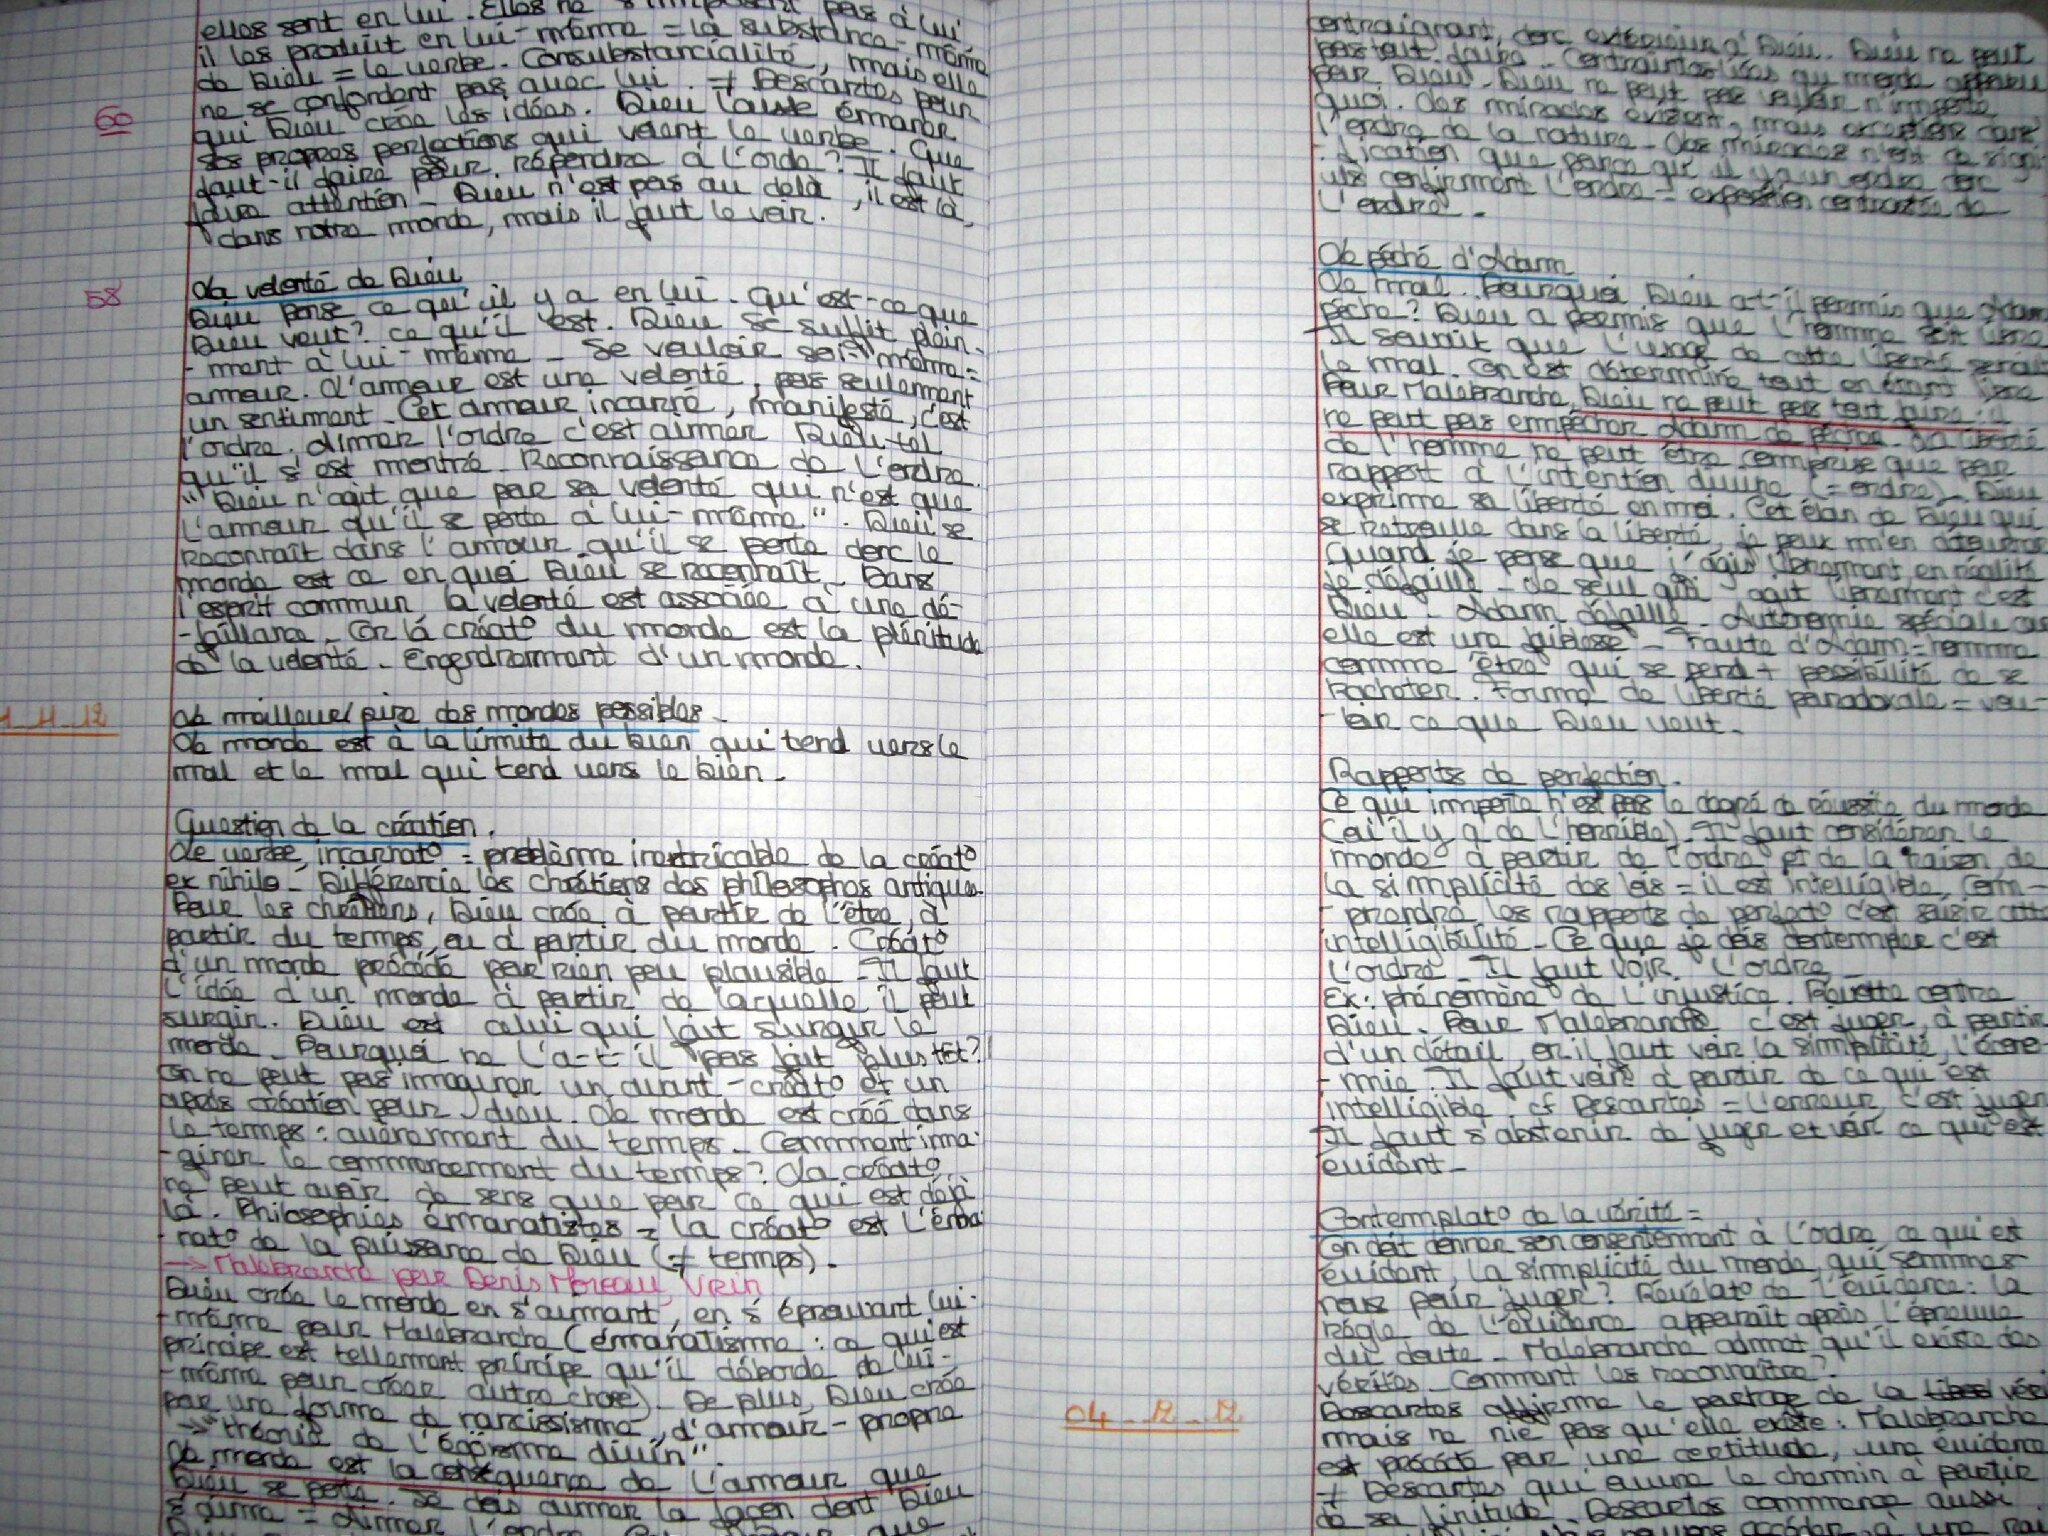 elles sont en lui. Elles ne s'imposent pas à lui
il les produit en lui-même = la substance-même
de Dieu = le verbe. Consubstancialité, mais elle
ne se confondent pas avec lui. ≠ Descartes pour
60
qui Dieu crée les idées. Dieu laisse émaner
ses propres perfections qui voient le verbe. Que
faut-il faire pour répondre à l'orde? Il faut
faire attention - Dieu n'est pas au delà, il est là,
dans notre monde, mais il faut le voir.
58
La volonté de Dieu
Dieu pense ce qu'il y a en lui. Qu'est-ce que
Dieu veut? ce qu'il est. Dieu se suffit plein-
-ment à lui-même - Se vouloir soi-même =
amour. L'amour est une volonté, pas seulement
un sentiment. Cet amour incarné, manifesté, c'est
l'ordre. Aimer l'ordre c'est aimer Dieu tel
qu'il s'est montré. Reconnaissance de l'ordre.
"Dieu n'agit que par sa volonté qui n'est que
l'amour qu'il se porte à lui-même". Dieu se
reconnaît dans l'amour qu'il se porte donc le
monde est ce en quoi Dieu se reconnaît. Dans
l'esprit commun la volonté est associée à une dé-
-faillance. Or la créat° du monde est la plénitude
de la volonté. Engendrement d'un monde.
Le meilleur/pire des mondes possibles.
Le monde est à la limite du bien qui tend vers le
mal et le mal qui tend vers le bien.
Question de la création.
Le verbe incarnat° = problème inextricable de la créat°
ex nihilo - Différencie les chrétiens des philosophes antiques
Pour les chrétiens, Dieu crée à partir de l'être, à
partir du temps, ou à partir du monde. Créat°
d'un monde précédé par rien peu plausible - Il faut
l'idée d'un monde à partir de laquelle il peut
surgir. Dieu est celui qui fait surgir le
monde. Pourquoi ne l'a-t-il pas fait plus tôt?
On ne peut pas imaginer un avant-créat° et un
après création pour Dieu. Le monde est créé dans
le temps: avènement du temps. Comment ima-
-giner le commencement du temps? La créat°
ne peut avoir de sens que par ce qui est déjà
là. Philosophies émanatistes = la créat° est l'éma-
-nat° de la puissance de Dieu (≠ temps).
→ Malebranche par Denis Moreau, Vrin
Dieu crée le monde en s'aimant, en s'éprouvant lui-
-même pour Malebranche (émanatisme: ce qui est
principe est tellement principe qu'il déborde de lui-
-même pour créer autre chose). De plus, Dieu crée
par une forme de narcissisme, d'amour-propre
→ "théorie de l'égoïsme divin".
Le monde est la conséquence de l'amour que
Dieu se porte. Je dois aimer la façon dont Dieu
s'aime = Aimer l'ordre.
contraignant, donc extérieur à Dieu. Dieu ne peut
pas tout faire. Contraintes liées au monde
par Dieu. Dieu ne peut pas vouloir n'importe
quoi. Les miracles existent, mais
l'ordre de la nature - Les miracles n'ont de signi-
-fication que parce qu'il y a un ordre donc
ils confirment l'ordre = exposition contrastée de
l'ordre.
Le péché d'Adam
Le mal. Pourquoi Dieu a-t-il permis que Adam
pèche? Dieu a permis que l'homme soit libre
Il savait que l'usage de cette liberté serait
le mal. On est déterminé tout en étant libre
Pour Malebranche, Dieu ne peut pas tout faire: il
ne peut pas empêcher Adam de pécher. La liberté
de l'homme ne peut être comprise que par
rapport à l'intention divine (= ordre). Dieu
exprime sa liberté en moi. Cet élan de Dieu qui
se retrouve dans la liberté, je peux m'en détourner
Quand je pense que j'agis librement, en réalité
je défaille - Le seul qui agit librement c'est
Dieu - Adam défaille - Autonomie spéciale car
elle est une faiblesse - Faute d'Adam = homme
comme être qui se perd + possibilité de se
racheter. Forme de liberté paradoxale = vou-
-loir ce que Dieu veut.
Rapports de perfection.
Ce qui importe n'est pas le degré de réussite du monde
(où il y a de l'horrible). Il faut considérer le
monde à partir de l'ordre et de la raison de
la simplicité des lois = il est intelligible. Com-
-prendre les rapports de perfect° c'est saisir cette
intelligibilité - Ce que je dois contempler c'est
l'ordre. Il faut voir l'ordre -
Ex: phénomène de l'injustice. Révolte contre
Dieu. Pour Malebranche c'est juger à partir
d'un détail, or il faut voir la simplicité, l'écono-
-mie. Il faut voir à partir de ce qui est
intelligible. cf Descartes = l'erreur, c'est juger
Il faut s'abstenir de juger et voir ce qui est
évident -
Contemplat° de la vérité =
On doit donner son consentement à l'ordre ce qui est
évident, la simplicité du monde, qui sommes
nous pour juger? Révélat° de l'évidence: la
règle de l'évidence apparaît après l'épreuve
du doute - Malebranche admet qu'il existe des
vérités. Comment les reconnaître?
04-12-12
Descartes affirme le partage de la véri
mais ne nie pas qu'elle existe: Malebranche
est précédé par une certitude, une évidence
≠ Descartes qui ouvre le chemin à partir
de sa finitude. Descartes commence aussi